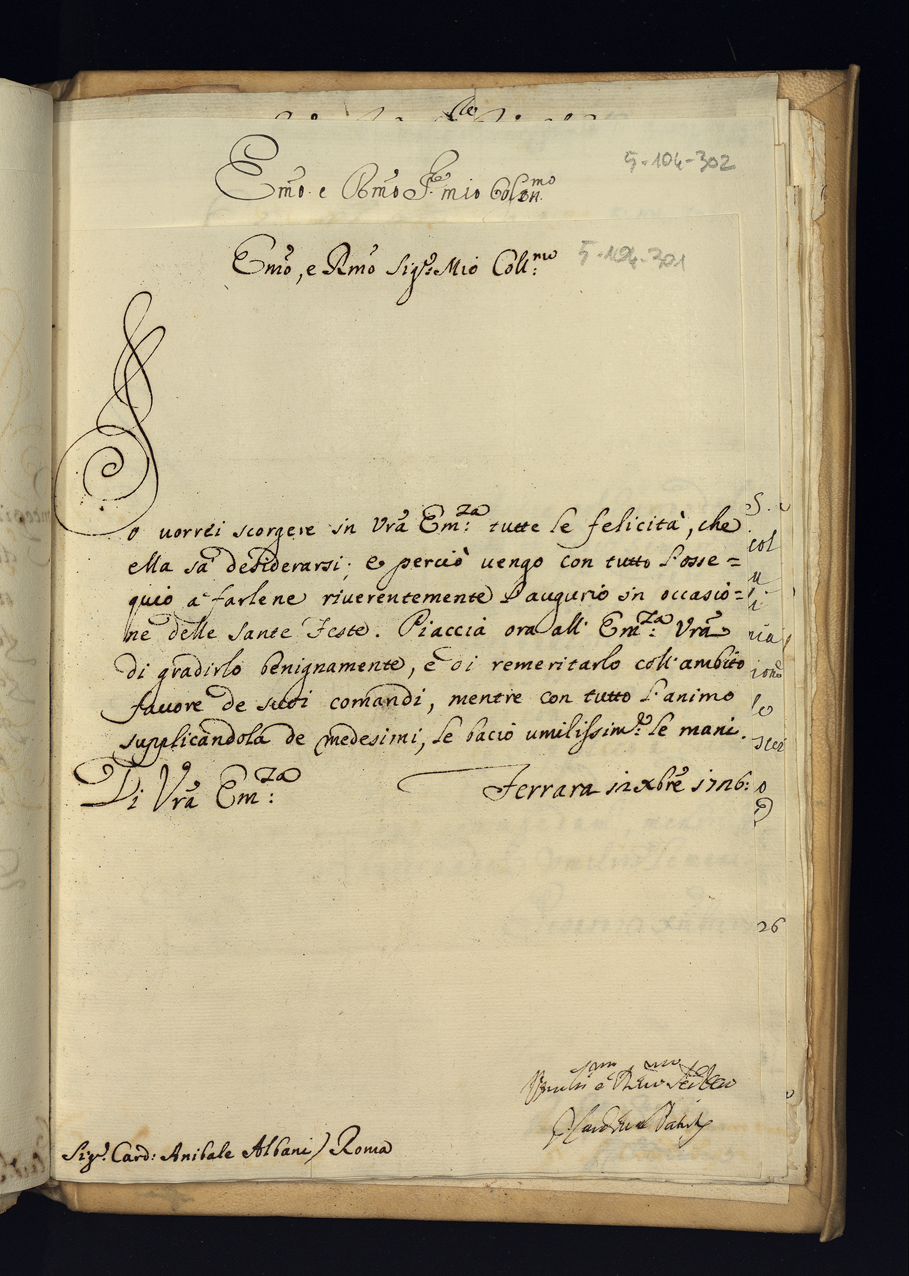 5-104-302
Em̃o. e Rm̃o Sig.re mio Colen.mo
Em̃o, e Rm̃o Sig.r Mio Coll:mo
5-104-301
Io vorrei scorgere in Vrã Em:za tutte le felicità, che
ella sà desiderarsi; e perciò vengo con tutto l'osse=
quio a farlene riverentemente l'augurio in occasio=
ne delle Sante Feste. Piaccia ora all' Em:za Vrã
di gradirlo benignamente, e di remeritarlo coll'ambito
favore de suoi comandi, mentre con tutto l'animo
supplicandola de medesimi, le bacio umilissim:te le mani.
Di Vrã Em:za
Ferrara 12 Xbrẽ 1726:
26
Sig.r Card: Anibale Albani) Roma